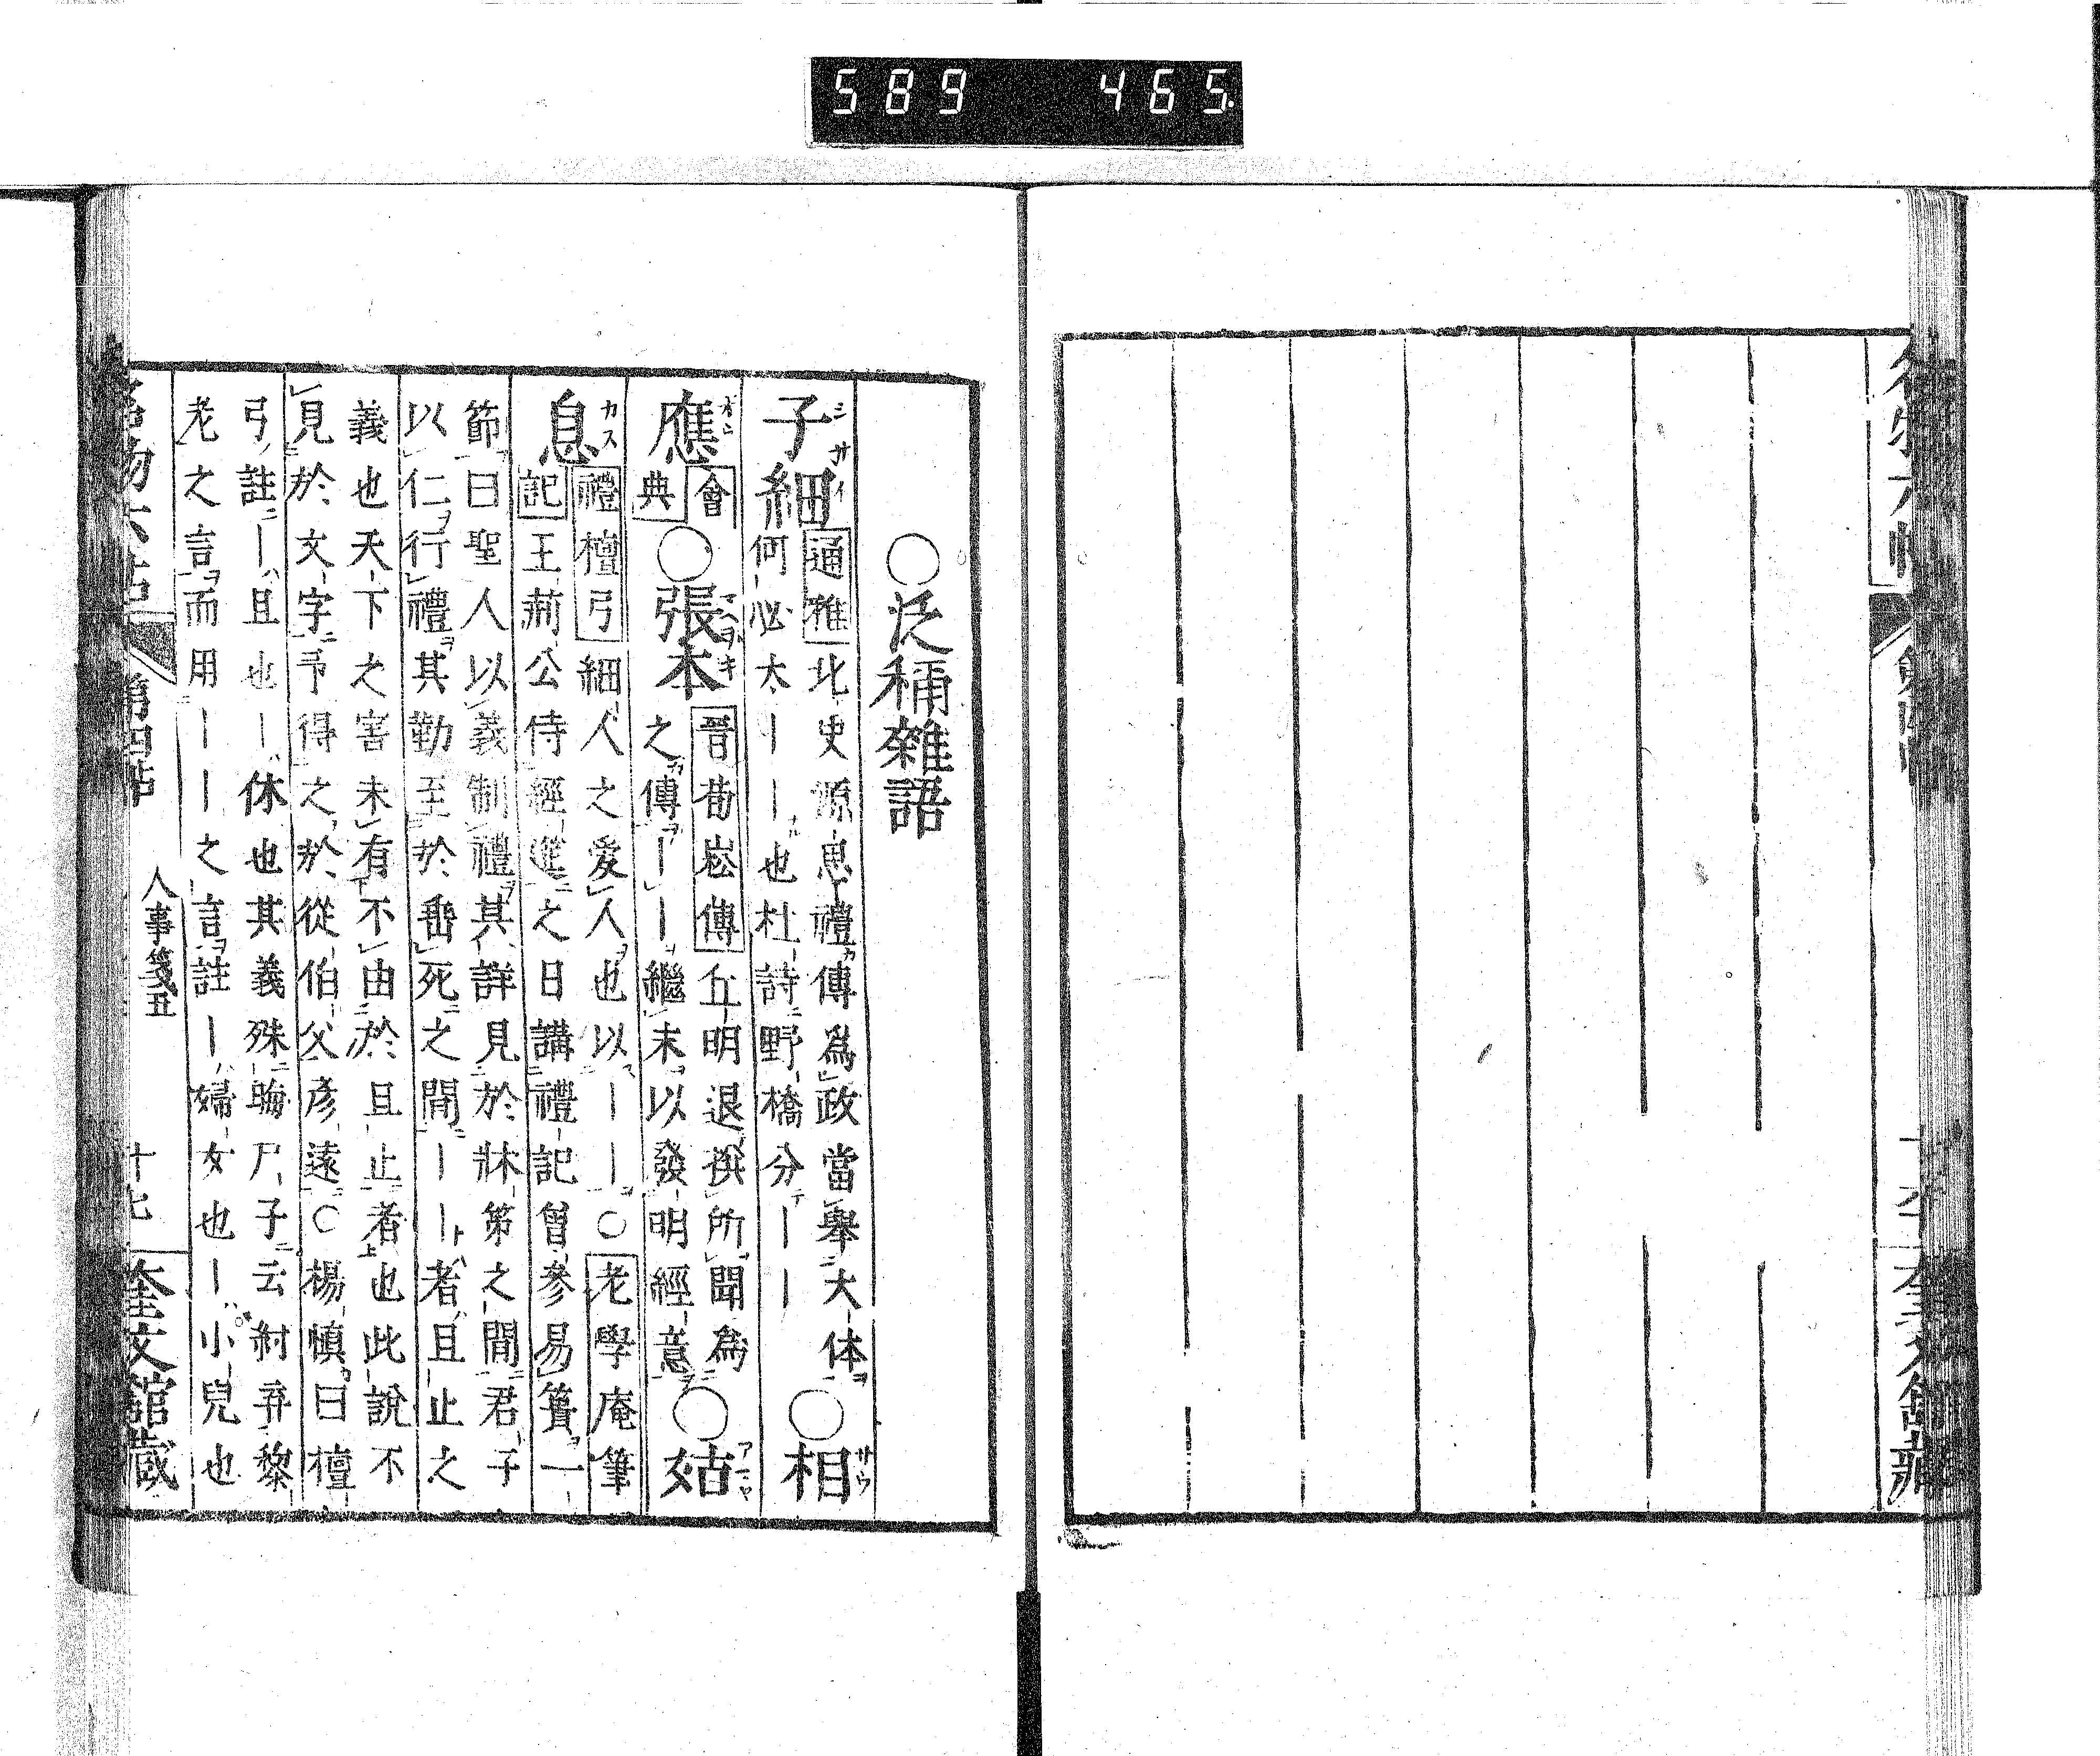 589 465.
○泛稱雜語
子細
通雅北史源思禮傳為政當舉大体
何必太｜｜也杜詩野橋分｜｜
○相
應
會
典
○張本
晉荀崧傳丘明退撰所聞為
之傳｜｜繼末以發明經意
○姑
息
禮檀弓細人之愛人也以｜｜○老學庵筆
記王荊公侍經筵之日講禮記曾參易簀一
節曰聖人以義制禮其詳見於牀第之間君子
以仁行禮其勤至於垂死之間｜｜者且止之
義也天下之害未有不由於且止者也此說不
見於文字予得之於從伯父彥遠○楊慎曰檀
弓註｜且也｜休也其義殊晦尸子云紂弃黎
老之言而用｜｜之言註｜婦女也｜小兒也
第四帖
人事箋丑
十七
奎文館藏